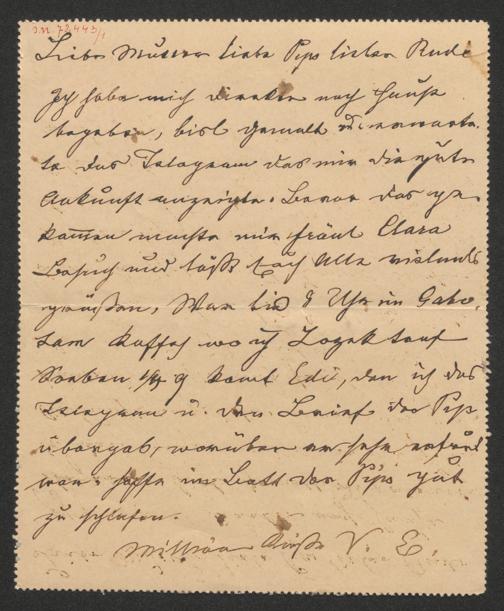 I.N. 72443/1
Liebe Mutter liebe Peps lieber Rude
Ich habe mich direkte nach Hause
begeben, bisl gemalt u. erwarte-
te das Telegram das mir die gute
Ankunft anzeigte. Bevor das ge-
kommen machte mir Fräul Clara
Besuch und läßt Euch Alle vielmals
grüßen. War bis 8 Uhr im
Kaffeh wo ich
Soeben 1/4 9 komt Edi, den ich das
Telegram u. den Brief der Peps
übergab, worüber er sehr erfreut
war. Hoffe im Bett der Peps gut
zu schlafen.
Million Küsse V. E.